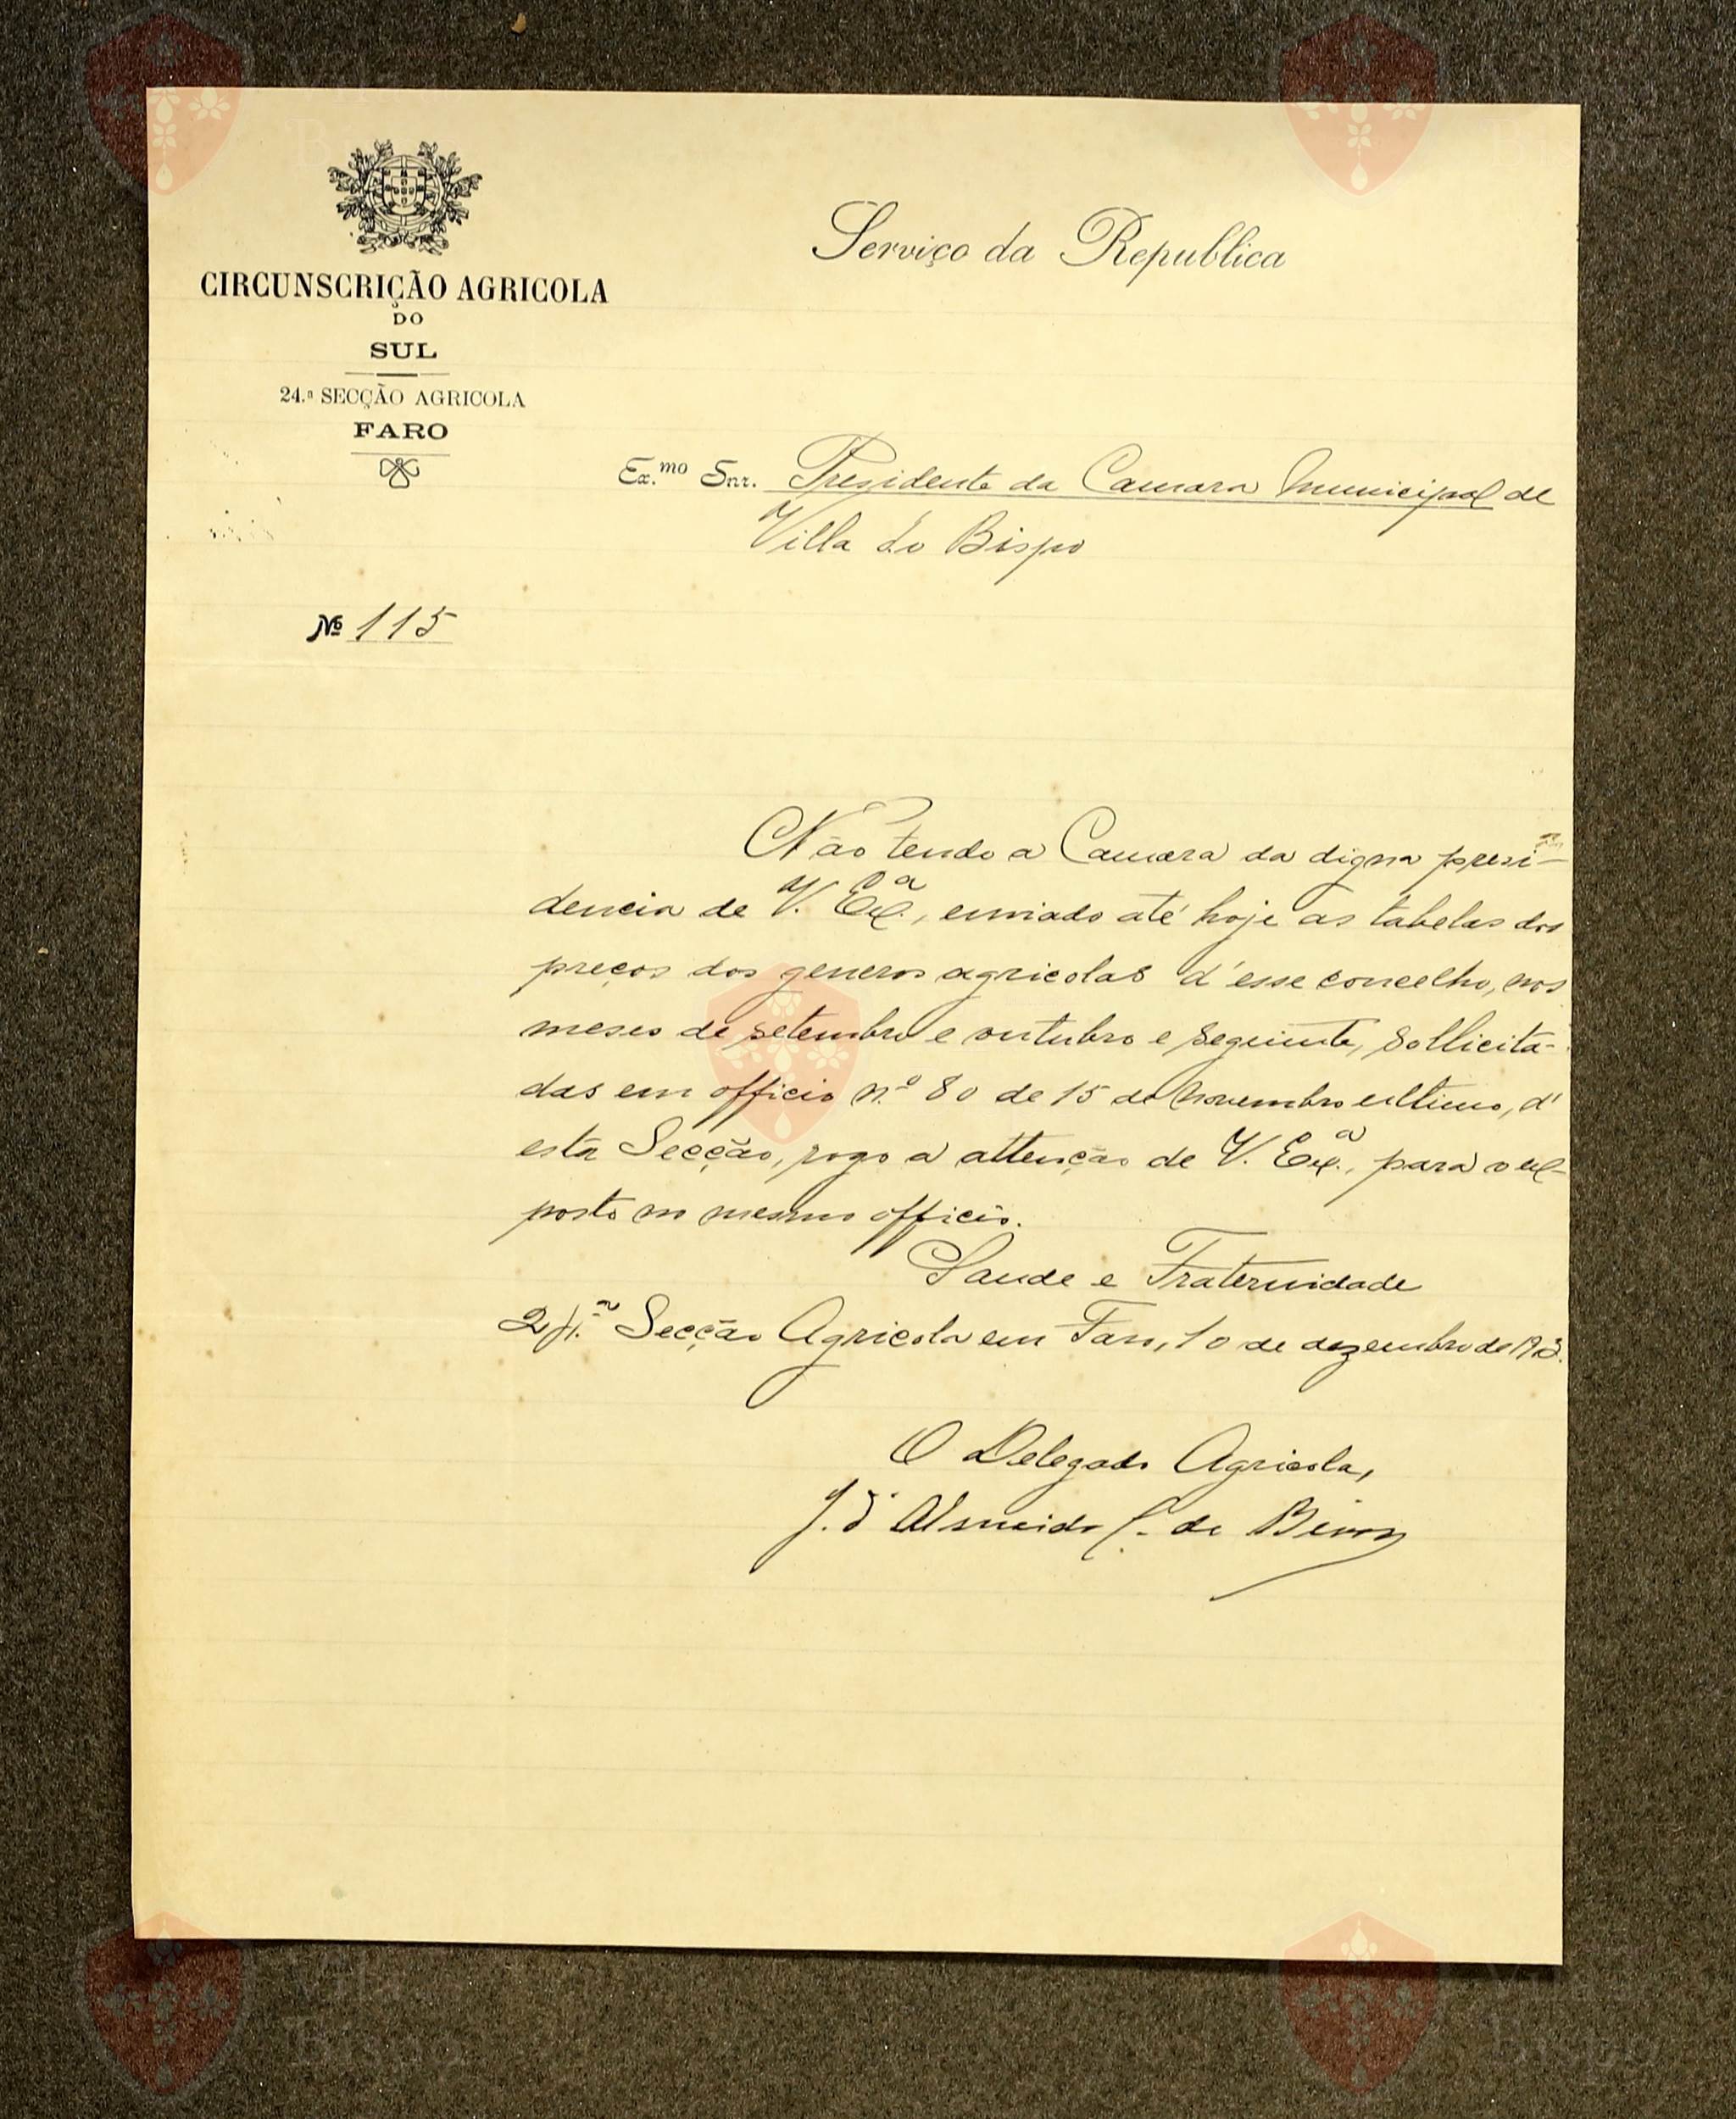 CIRCUNSCRIÇÃO AGRICOLA
DO
SUL
24.ª SECÇÃO AGRICOLA
FARO
Serviço da Republica
Ex.mo Snr. Presidente da Camara Municipal de
Villa do Bispo
Nº 115
Não tendo a Camara da digna presi-
dencia de V. Exª., enviado até hoje as tabelas dos
preços dos generos agricolas d'esse concelho, nos
meses de setembro e outubro e seguinte, sollicita-
das em officio n.º 80 de 15 de novembro ultimo, d'
esta Secção, rogo a attenção de V. Exª., para o ex-
posto no mesmo officio.
Saude e Fraternidade
24.ª Secção Agricola em Faro, 10 de dezembro de 1913.
O Delegado Agricola,
J. d'Almeida C. de Bivar
Vila
Bispo